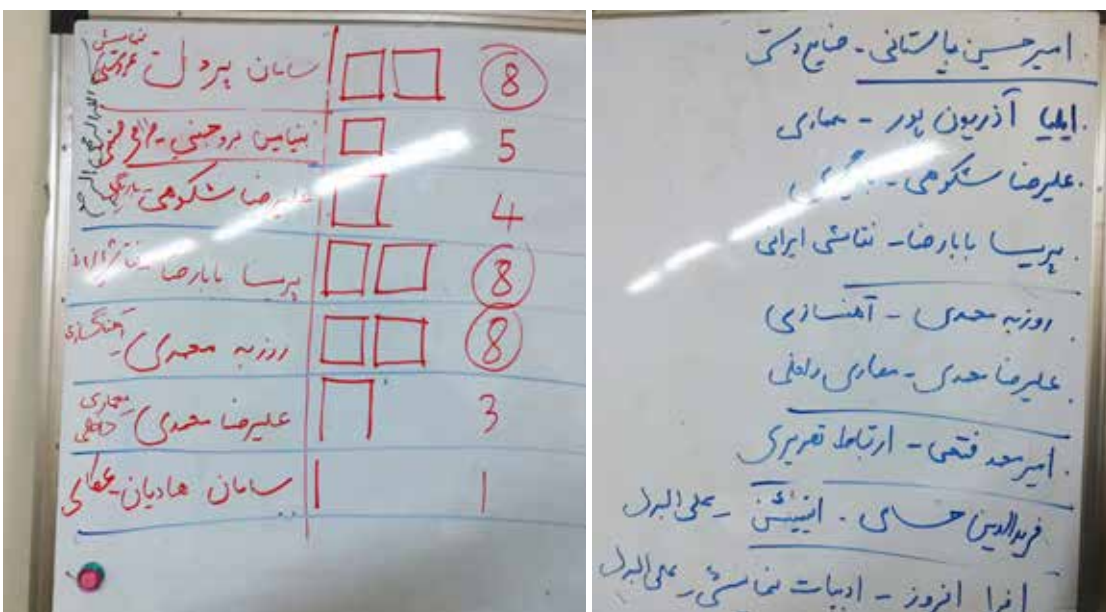 سامان پردل نمایش عروسکی 8
بنیامین بروجنی 5
علیرضا شکوهی 4
پریسا بابارضا 8
روزبه محمدی آهنگسازی 8
علیرضا محمدی معماری داخلی 3
سامان هادیان 1
امیرحسین باستانی - صنایع دستی
ایلیا آذریون پور - معماری
علیرضا شکوهی -
پریسا بابارضا - نقاشی ایرانی
روزبه محمدی - آهنسازی
علیرضا محمدی - معماری داخلی
امیرمحمد فتحی - ارتباط تصویری
فریدالدین - انیمیشن - علی البدل
افرا افروز - ادبیات نمایشی - علی البدل